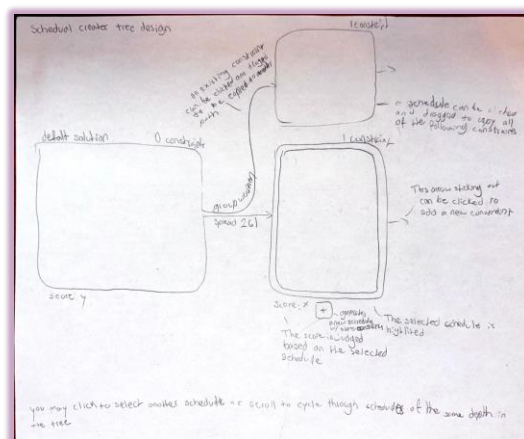 Schedual creater tree design
1 constrint
an existing constraint
can be
to be copied to
a schedule can be clicked
and dragged to copy all
of the following constraints
defalt solution
0 constraint
1 constrint
group
spread 261
This arrow sticking out
can be clicked to
add a new constraint
score: y
score: x
+
generates
a new schedule
The selected schedule is
highlited
The score is judged
based on the selected
schedule
you may click to select another schedule or scroll to cycle through schedules of the same depth in
the tree